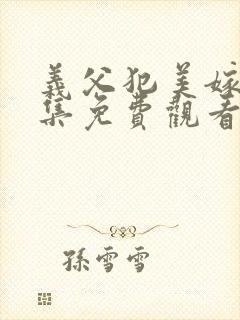 義父犯美嫁
集免費觀看
孫雪雪